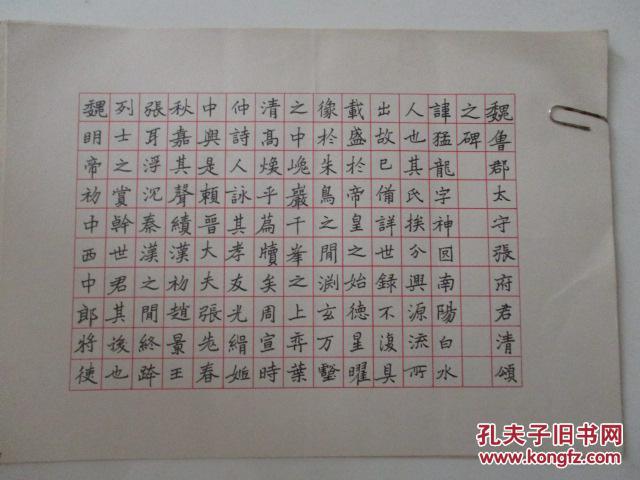 魏魯郡太守張府君清頌
之碑
諱猛龍字神囧南陽白水
人也其氏挨分興源流所
出故已備詳世録不復具
載盛於帝皇之始德星曜
像於朱鳥之間渊玄万壑
之中巉巖千峯之上弈葉
清高煥乎篇牘矣周宣時
仲詩人詠其孝友光緝姬
中興是賴晉大夫張老春
秋嘉其聲績漢初趙景王
張耳浮沉秦漢之間終跡
列士之賞幹世君其後也
魏明帝初中西中郎將使
孔夫子旧书网
www.kongfz.com